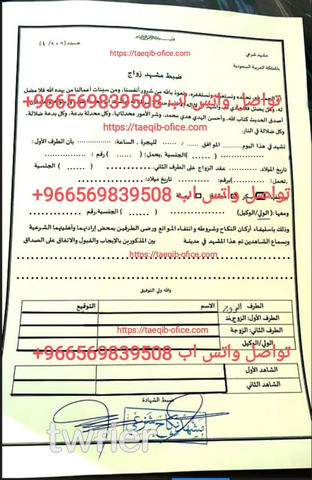 مشهد شرعي
بالمملكة العربية السعودية
https://taeqib-ofice.com
ضبط مشهد زواج
ونستغفره، ونعوذ بالله من شرور أنفسنا، ومن سيئات أعمالنا من يهده الله فلا مضل
تواصل واتس اب 966569839508+
أصدق الحديث كتاب الله، وأحسن الهدي هدي محمد، وشر الأمور محدثاتها، وكل محدثة بدعة، وكل بدعة ضلالة،
وكل ضلالة في النار.
https://taeqib-ofice.com
نشهد في هذا اليوم الموافق / / للهجرة , الساعة: بأن الطرف الأول:
تاريخ ميلاد: / / الجنسية يحمل: ( ) رقم:
عقد الزواج على الطرف الثاني: الجنسية
تحمل: ( ) برقم: تاريخ ميلاد:
تواصل واتس اب 966569839508+
الولي/الوكيل
ومعها (الولي/الوكيل): الجنسية( ) رقم:
وذلك باستيفاء أركان النكاح وشروطه و انتفاء الموانع ورضى الطرفين بمحض إرادتهما وأهليتهما الشرعية
وبسماع الشاهدين تم هذا المشهد في مدينة بين المذكورين بالإيجاب والقبول والاتفاق على الصداق
https://taeqib-ofice.com
والله ولي التوفيق
الطرف الاسم التوقيع
الطرف الأول: الزوج
https://taeqib-ofice.com
الطرف الثاني: الزوجة
الولي/الوكيل
تواصل واتس اب 966569839508+
الشاهد الأول
الشاهد الثاني
ضبط الشهادة
twrier